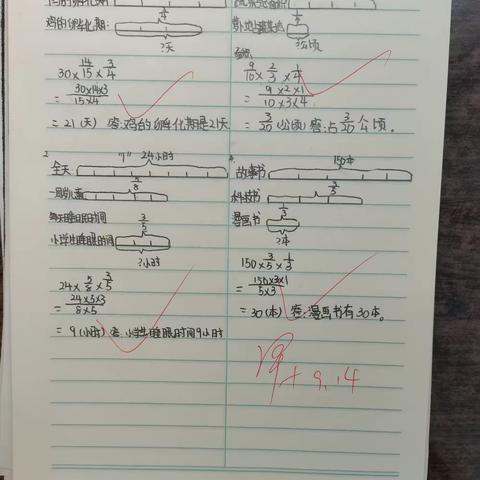 鸡的孵化期:
?天
30×14/15×3/4
=30×14×3/15×4
=21(天) 答:鸡的孵化期是21天
?公顷
9/10×2/3×1/4
=9×2×1/10×3×4
=3/20(公顷) 答:占3/20公顷。
2.
24小时
全天
5/8
3/5
小学生睡眠时间
?小时
24×5/8×3/5
=9(小时) 答:小学生睡眠时间9小时
4.
150本
故事书
3/5
科技书
1/3
漫画书
?本
150×3/5×1/3
=150×3×1/5×3
=30(本) 答:漫画书有30本。
9.14